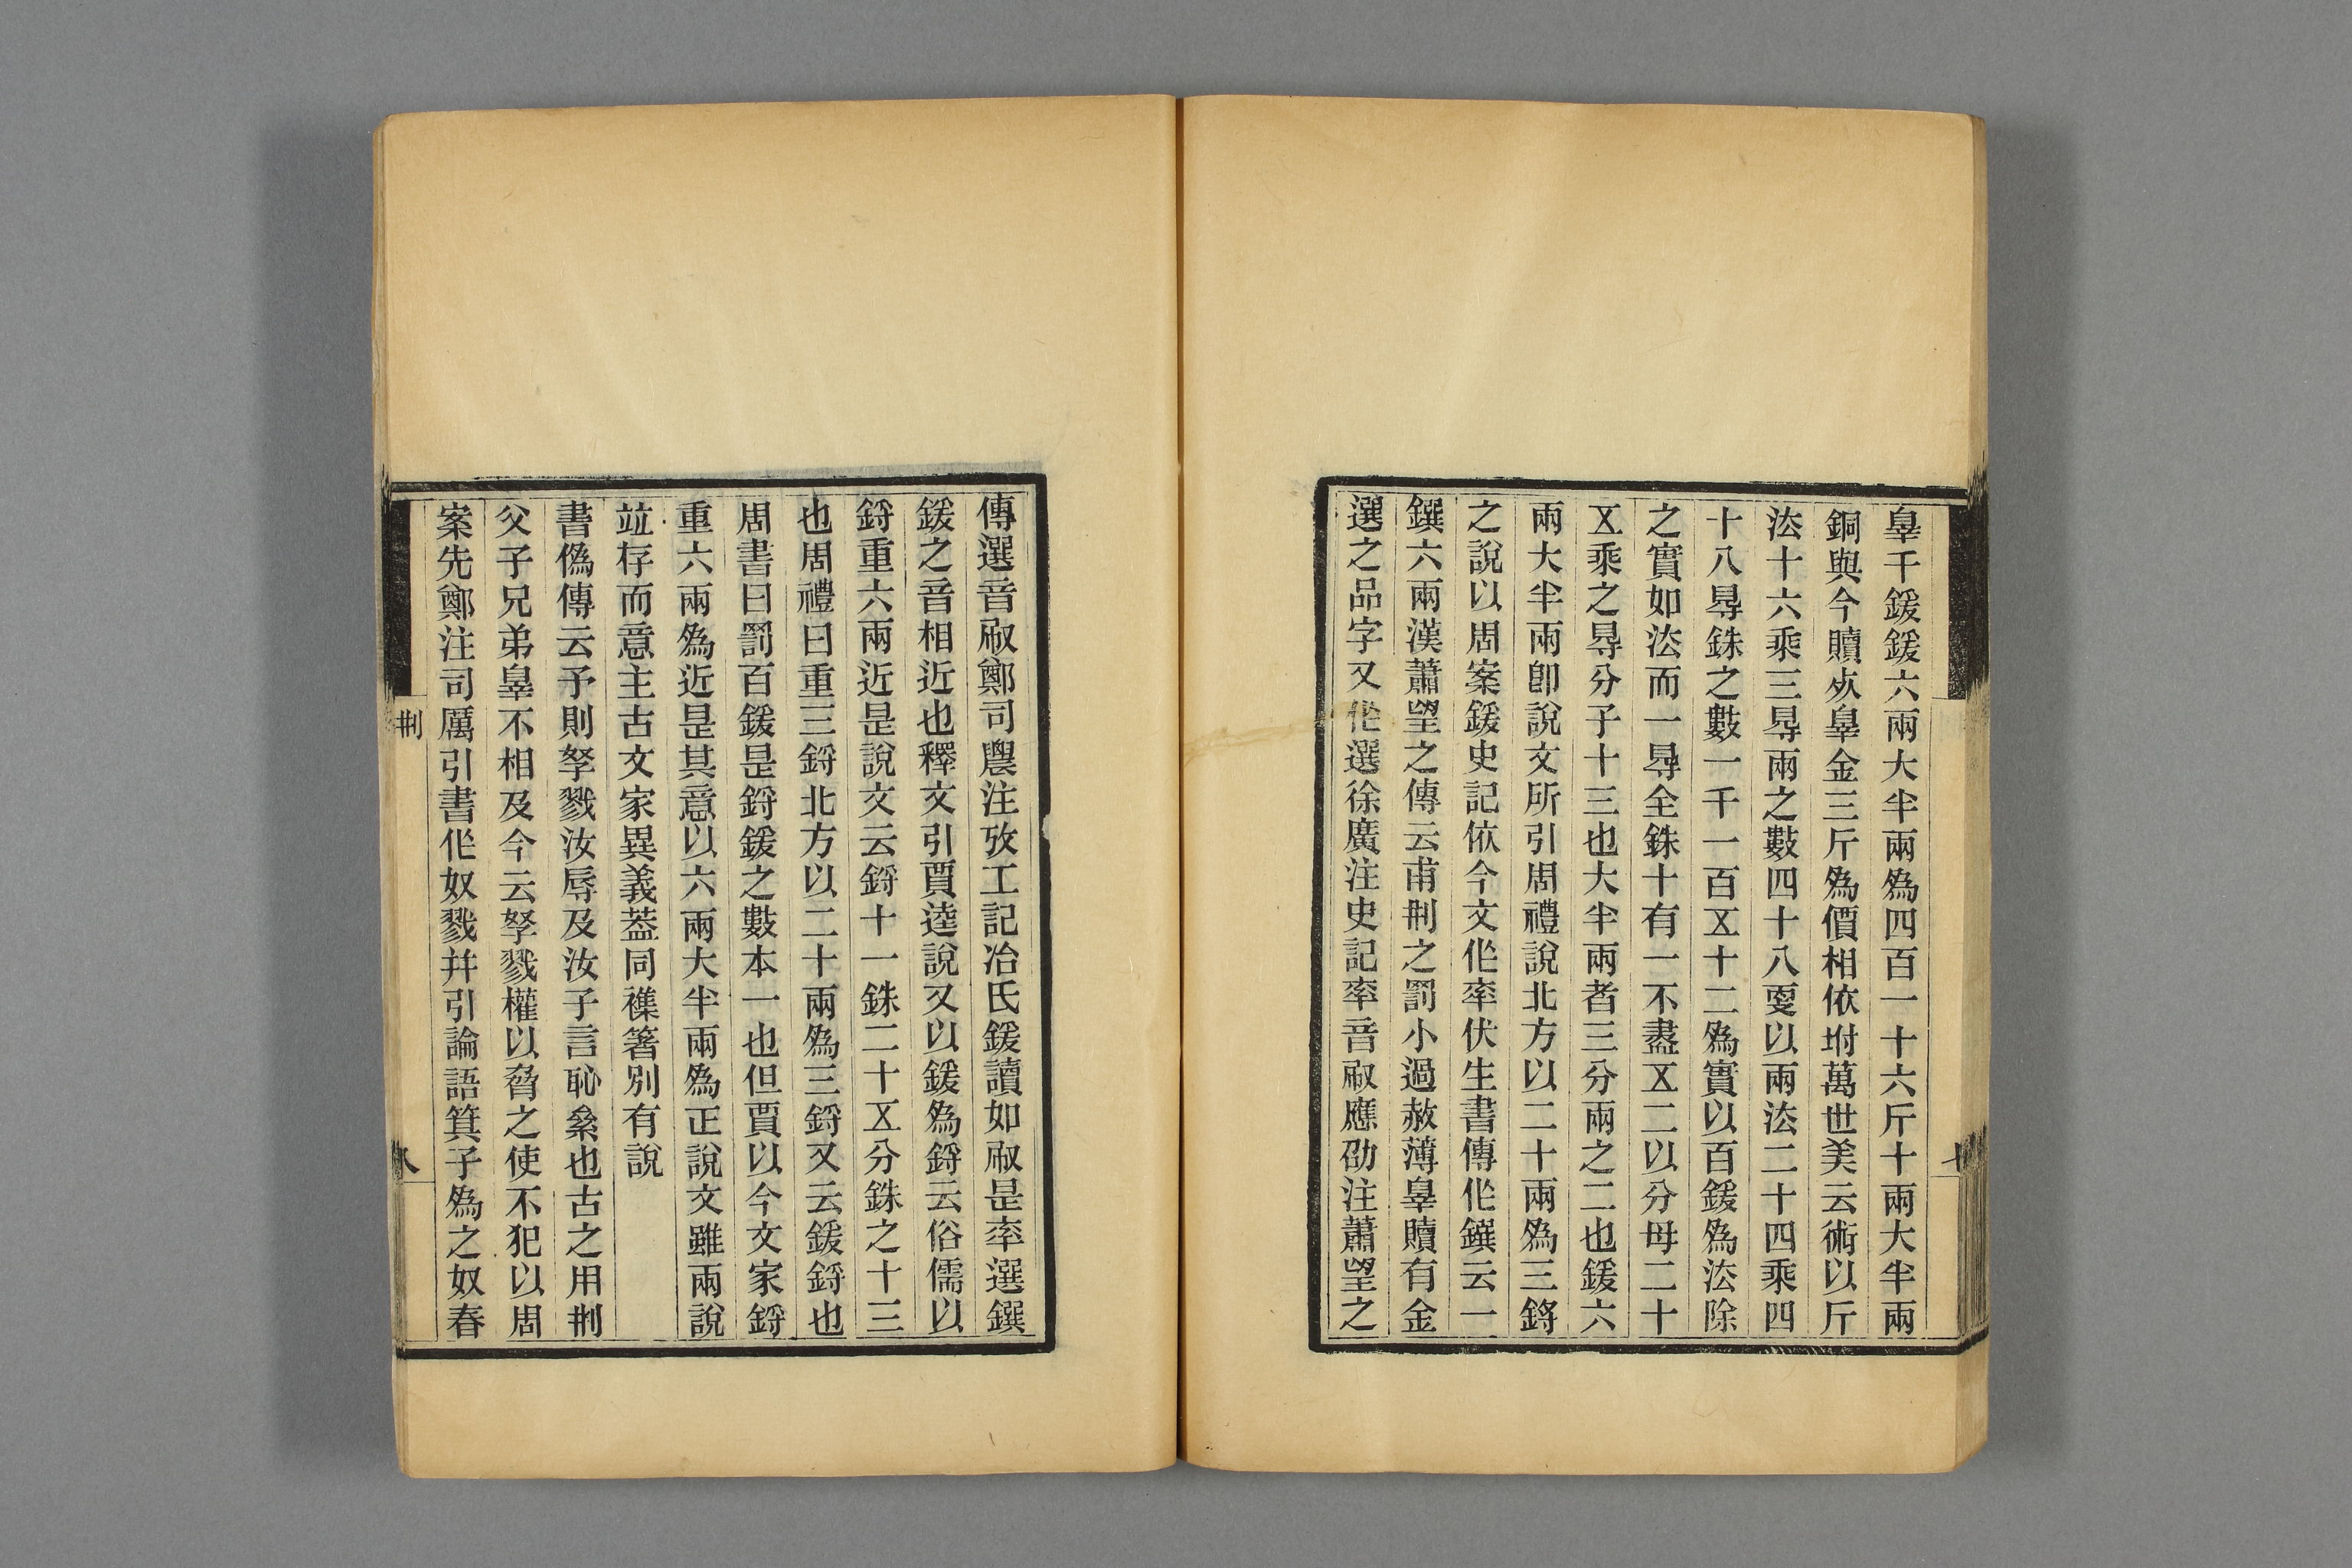 辠千鍰鍰六兩大半兩爲四百一十六斤十兩大半兩
銅與今贖死辠金三斤爲價相依坿萬世美云術以斤
法十六乘三㝵兩之數四十八㪅以兩法二十四乘四
十八㝵銖之數一千一百㐅十二爲實以百鍰爲法除
之實如法而一㝵全銖十有一不盡㐅二以分母二十
㐅乘之㝵分子十三也大半兩者三分兩之二也鍰六
兩大半兩卽說文所引周禮說北方以二十兩爲三鋝
之說以周案鍰史記依今文作率伏生書傳作鐉云一
鐉六兩漢蕭望之傳云甫刑之罰小過赦薄辠贖有金
選之品字又作選徐廣注史記率音刷應劭注蕭望之
傳選音刷鄭司農注攷工記冶氏鍰讀如刷是率選鐉
鍰之音相近也釋文引賈逵說又以鍰爲鋝云俗儒以
鋝重六兩近是說文云鋝十一銖二十㐅分銖之十三
也周禮曰重三鋝北方以二十兩爲三鋝又云鍰鋝也
周書曰罰百鍰是鋝鍰之數本一也但賈以今文家鋝
重六兩爲近是其意以六兩大半兩爲正說文雖兩說
竝存而意主古文家異義葢同襍箸別有說
書僞傳云予則孥戮汝辱及汝子言恥絫也古之用刑
父子兄弟辠不相及今云孥戮權以脅之使不犯以周
案先鄭注司厲引書作奴戮并引論語箕子爲之奴春
刑
七
八